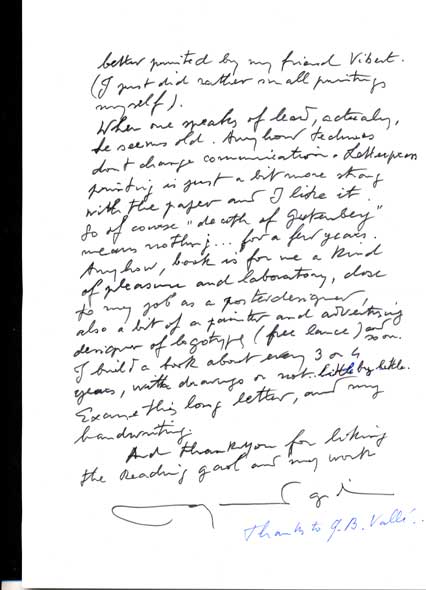 better printed by my friend Vibert.
(I just did rather small printings
myself).
When one speaks of lead, actualy,
he seems old. Anyhow technics
don't change communication. Letterpress
printing is just a bit more strong
with the paper and I like it.
So of course "death of Gutenberg"
means nothing... for a few years.
Anyhow, book is for me a kind
of pleasure and laboratory, close
to my job as a posterdesigner,
also a bit of a painter and advertising
designer of logotype (free lance) and soon.
I build a book about every 3 or 4
years, with drawings or not. little by little.
Excuse this long letter, and my
handwriting.
And thankyou for liking
the Reading gaol and my work
Thanks to J.B. Vallé..